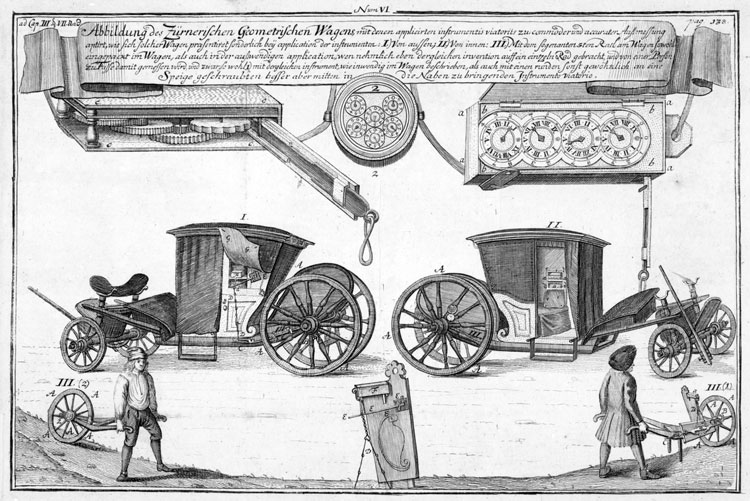 Num VI.
ad Cap. III & VII. Rad.
pag. 128.
Abbildung des Zürnerischen Geometrischen Wagens mit denen applicirten instrumentis viatoriis zu commoder und accurater Ausmessung
wie sich solcher Wagen præsentiret sonderlich bey application der instrumenten. I.) Von aussen, II.) Von innen: III.) Mit dem sogenanten Rad, am Wagen sowohl
eingepackt im Wagen, als auch in der auswendigen application, wo nehmlich eben dergleichen invention auff ein eintzeln Rad gebracht, und von einer Person
zu Fusse damit gemessen werd und zwar so wohl mit dergleichen instrument, wie inwendig im Wagen beschrieben, als auch mit einen runden sonst gewöhnlich an eine
Speige geschraubten besser aber mitten in die Naben zu bringenden Instrumento viatorio.
2
2
a
b
a
b
a
a
c
c
I.
II.
A
A
A
A
A
III. (2)
A
A
A
E
E
III. (1)
A
B
B